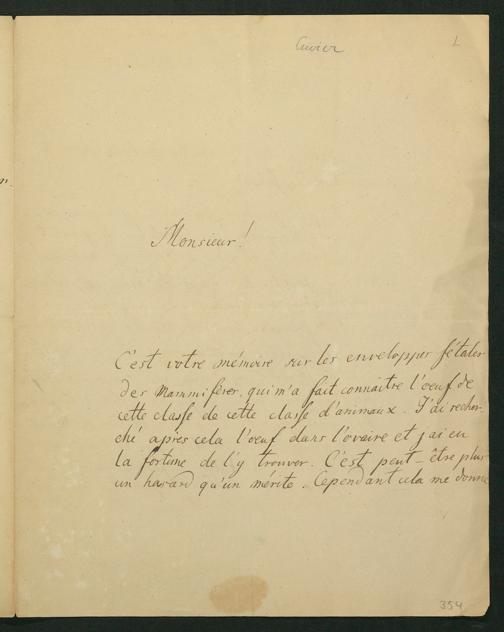 Cuvier
L
Monsieur!
C'est votre mémoire sur les enveloppes fétales
des Mammifères, qui m'a fait connaitre l'oeuf de
cette classe de cette classe d'animaux. J'ai recher-
ché après cela l'oeuf dans l'ovaire et j'ai eu
la fortune de l'y trouver. C'est peut-être plus
un hasard qu'un mérite. Cependant cela me donne
354